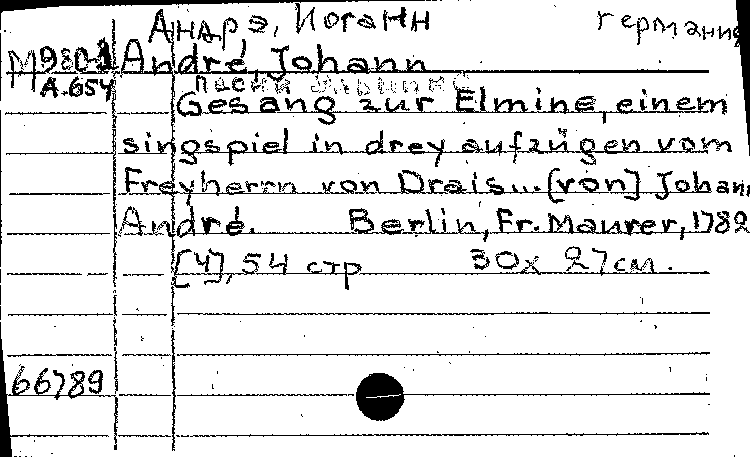 Андрэ, Иоганн германия
М980-1 André, Johann
А.654
Gesang zur Elmine, einem
singspiel in drey aufzügen vom
Freyherrn von Drais... [von] Johann
André. Berlin, Fr. Maurer, 1782
[4], 54 стр 30x27см.
66789